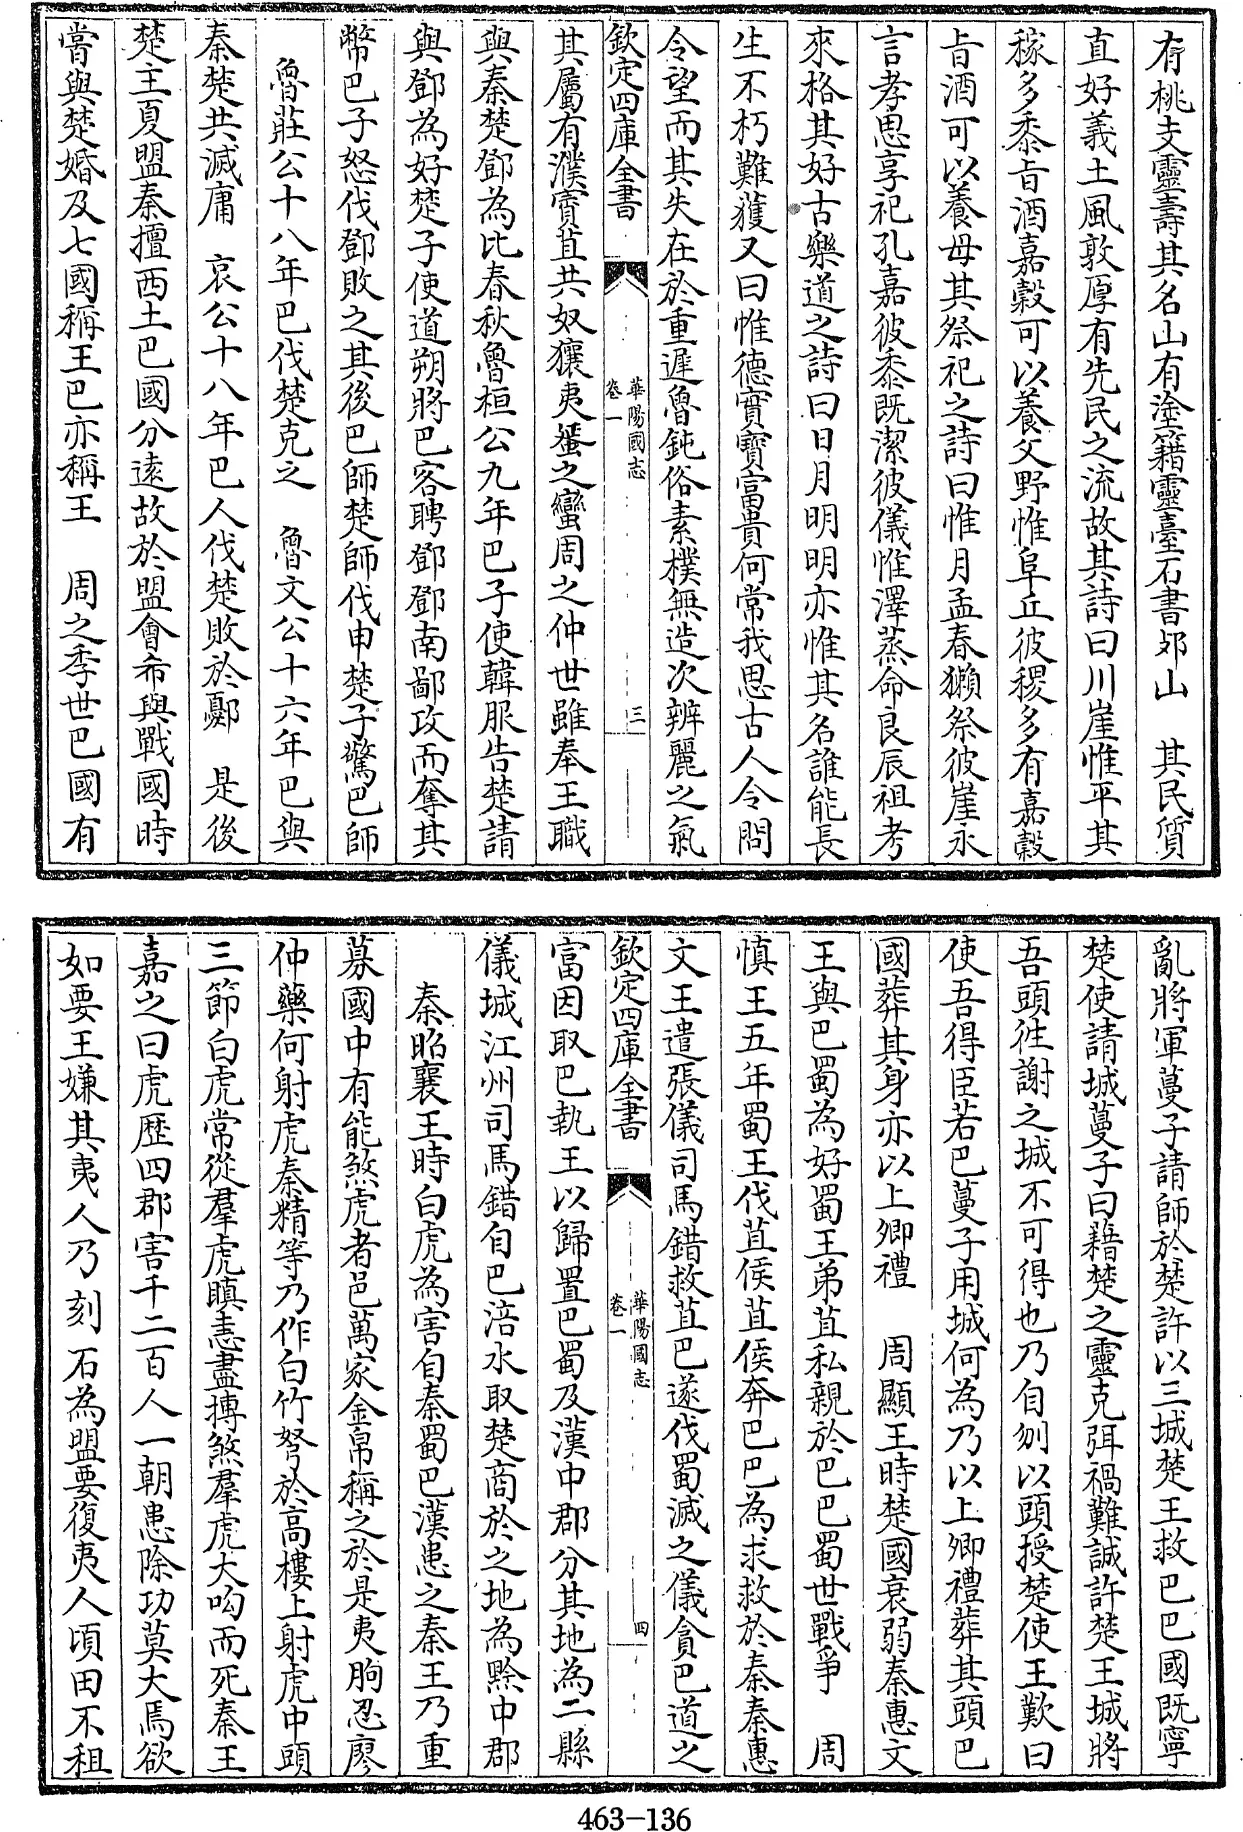 有桃支靈壽其名山有塗籍靈臺石書邜山　其民質
直好義土風敦厚有先民之流故其詩曰川崖惟平其
稼多黍旨酒嘉穀可以養父野惟阜丘彼稷多有嘉穀
旨酒可以養母其祭祀之詩曰惟月孟春獺祭彼崖永
言孝思享祀孔嘉彼黍既潔彼儀惟澤蒸命良辰祖考
來格其好古樂道之詩曰日月明明亦惟其名誰能長
生不朽難獲又曰惟德實寶富貴何常我思古人令問
令望而其失在於重遲魯鈍俗素樸無造次辨麗之氣
欽定四庫全書
華陽國志
卷一
三
其屬有濮賨苴共奴獽夷蜑之蠻周之仲世雖奉王職
與秦楚鄧為比春秋魯桓公九年巴子使韓服告楚請
與鄧為好楚子使道朔將巴客聘鄧鄧南鄙攻而奪其
幣巴子怒伐鄧敗之其後巴師楚師伐申楚子驚巴師
魯莊公十八年巴伐楚克之　魯文公十六年巴與
秦楚共滅庸　哀公十八年巴人伐楚敗於鄾　是後
楚主夏盟秦擅西土巴國分遠故於盟會希與戰國時
嘗與楚婚及七國稱王巴亦稱王　周之季世巴國有
亂將軍蔓子請師於楚許以三城楚王救巴巴國既寧
楚使請城蔓子曰藉楚之靈克弭禍難誠許楚王城將
吾頭往謝之城不可得也乃自刎以頭授楚使王歎曰
使吾得臣若巴蔓子用城何為乃以上卿禮葬其頭巴
國葬其身亦以上卿禮　周顯王時楚國衰弱秦惠文
王與巴蜀為好蜀王弟苴私親於巴巴蜀世戰爭　周
慎王五年蜀王伐苴侯苴侯奔巴巴為求救於秦秦惠
文王遣張儀司馬錯救苴巴遂伐蜀滅之儀貪巴道之
欽定四庫全書
華陽國志
卷一
四
富因取巴執王以歸置巴蜀及漢中郡分其地為二縣
儀城江州司馬錯自巴涪水取楚商於之地為黔中郡
秦昭襄王時白虎為害自秦蜀巴漢患之秦王乃重
募國中有能煞虎者邑萬家金帛稱之於是夷朐忍廖
仲藥何射虎秦精等乃作白竹弩於高樓上射虎中頭
三節白虎常從羣虎瞋恚盡搏煞羣虎大呴而死秦王
嘉之曰虎歷四郡害千二百人一朝患除功莫大焉欲
如要王嫌其夷人乃刻石為盟要復夷人頃田不租
463-136